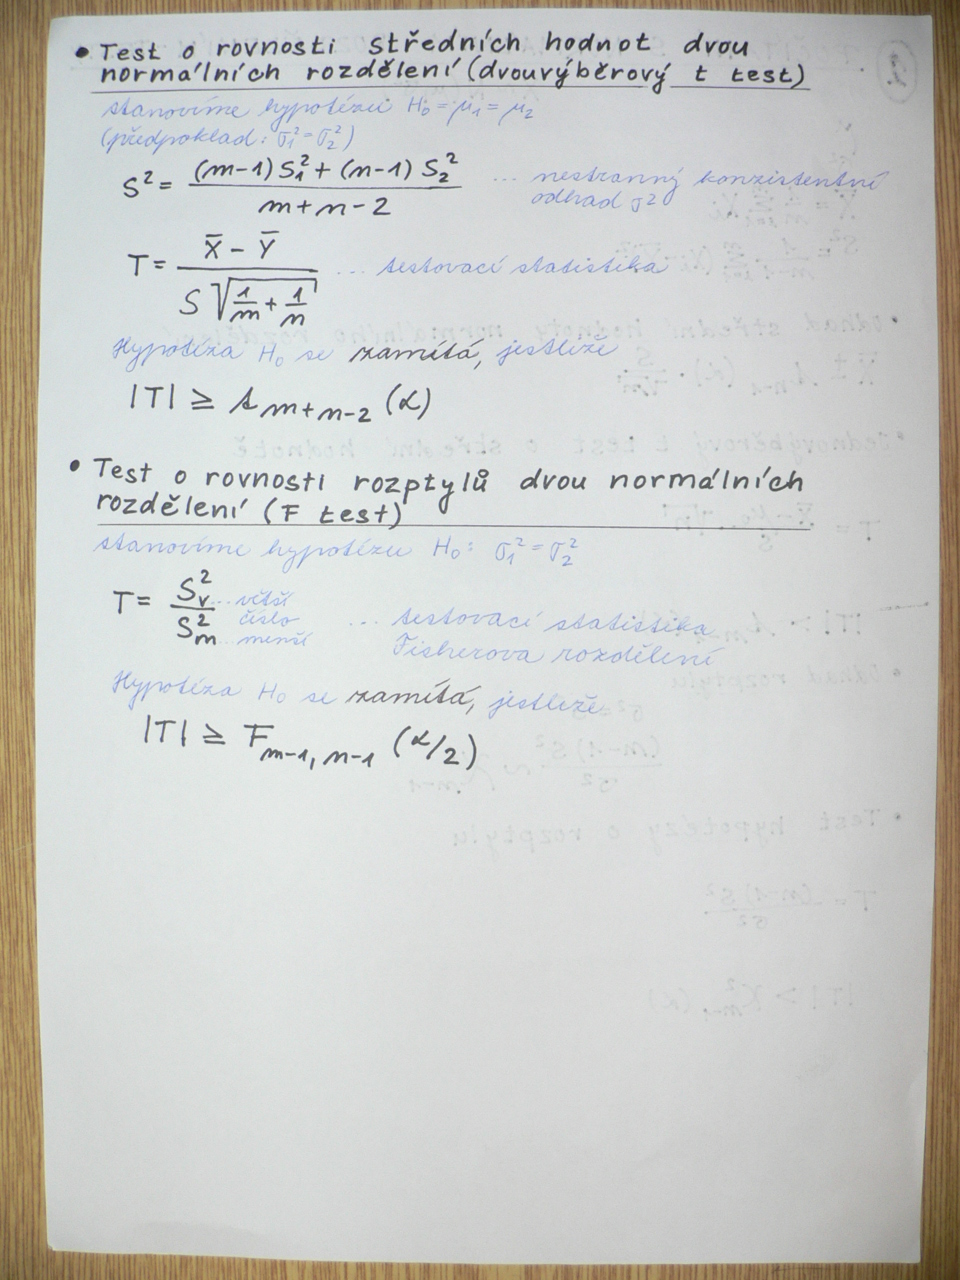 • Test o rovnosti středních hodnot dvou
normálních rozdělení (dvouvýběrový t test)
stanovíme hypotézu H₀ = μ₁ = μ₂
(předpoklad: σ₁² = σ₂²)
S² = ((m-1) S₁² + (n-1) S₂²) / (m+n-2) ... nestranný konzistentní
odhad σ²
T = (X̄ - Ȳ) / (S √(1/m + 1/n)) ... testovací statistika
Hypotéza H₀ se zamítá, jestliže
|T| ≥ t m+n-2 (α)
• Test o rovnosti rozptylů dvou normálních
rozdělení (F test)
stanovíme hypotézu H₀: σ₁² = σ₂²
T = S²ᵥ / S²ₘ ... větší číslo ... menší ... testovací statistika
Fisherova rozdělení
Hypotéza H₀ se zamítá, jestliže
|T| ≥ F m-1, n-1 (α/2)